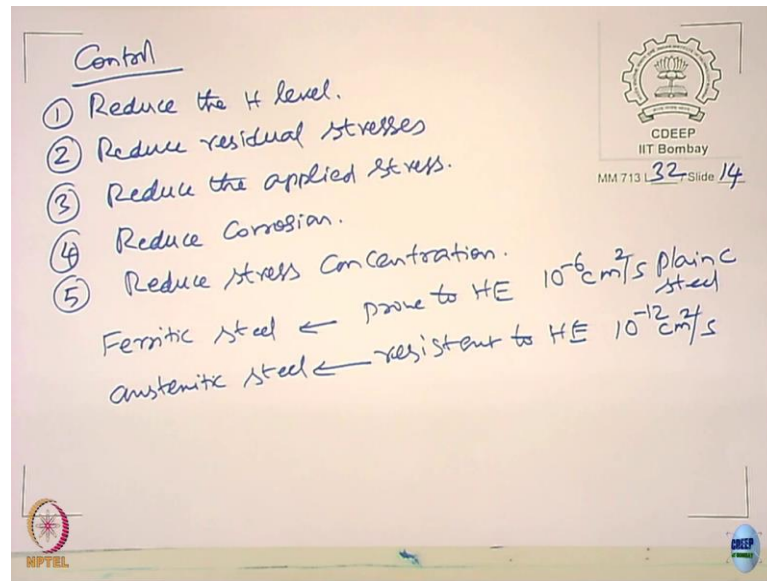 Control
① Reduce the H level.
② Reduce residual stresses
③ Reduce the applied stress.
④ Reduce Corrosion.
⑤ Reduce stress concentration.
Ferritic steel ← prone to HE 10⁻⁶ cm²/s plain C steel
austenitic steel ← resistent to HE 10⁻¹² cm²/s
CDEEP
IIT Bombay
MM 713 L 32 Slide 14
NPTEL
CDEEP